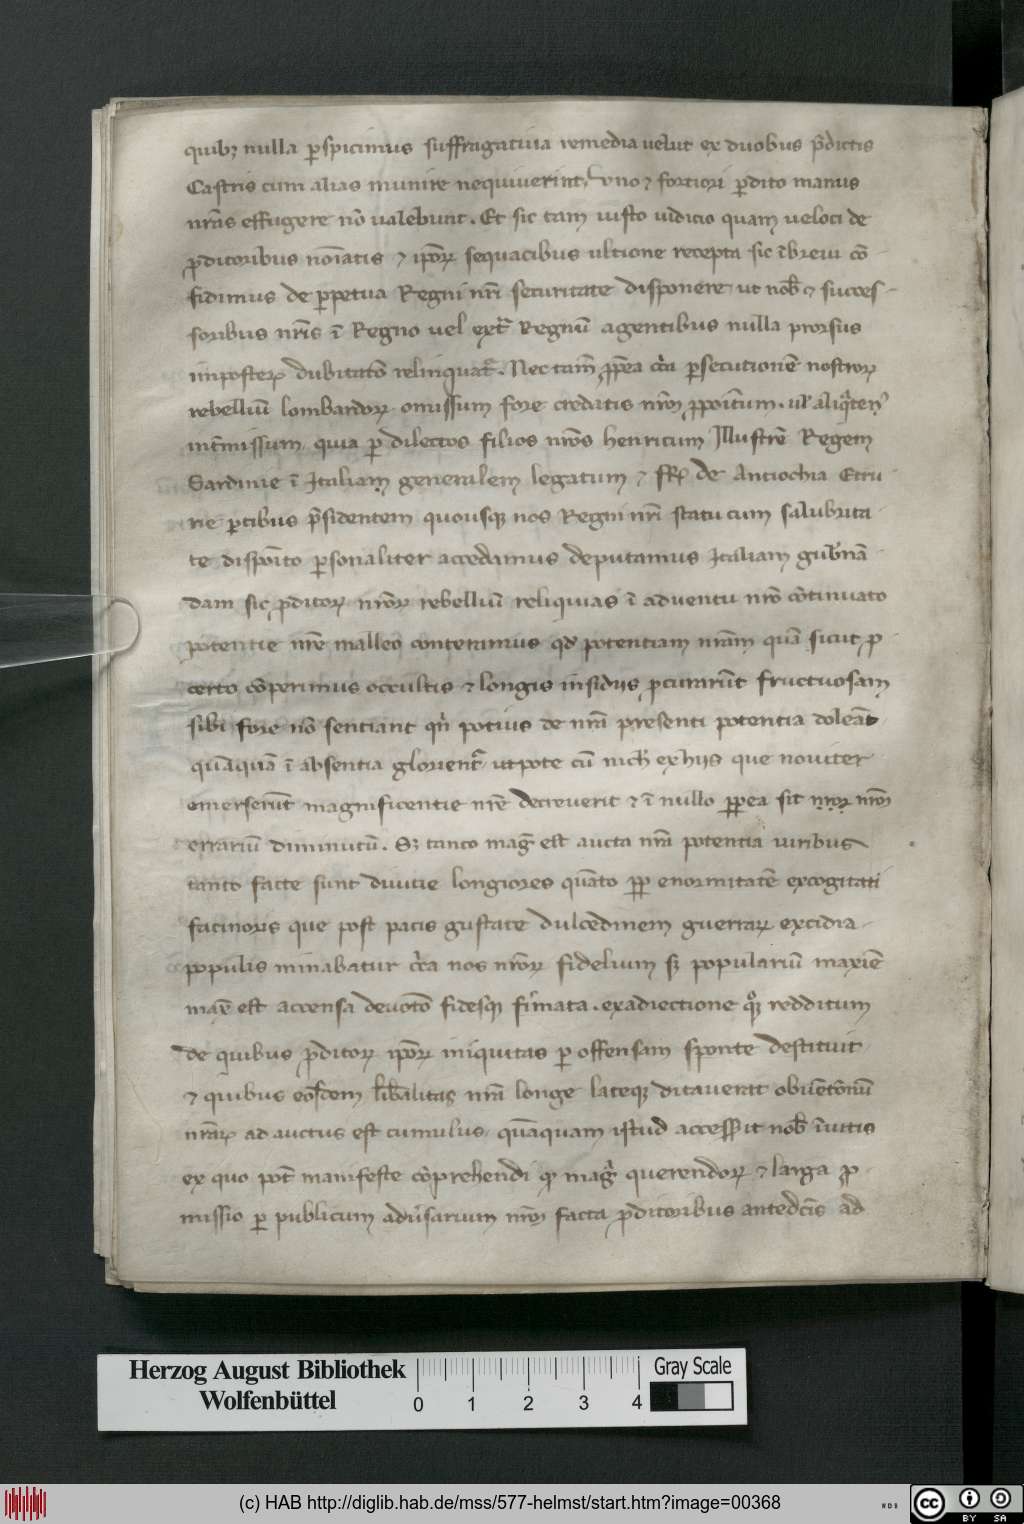 quibꝫ nulla ꝑspicimus suffragatiua remedia velut ex duobus p̄dictis
Castris cum alias munire nequiuerint, vno ⁊ fortiori ꝑdito manus
nr̄as effugere nō valebunt. Et sic tam iusto iudicio quam veloci de
ꝓditoribus noīatis ⁊ ip̄oꝝ sequacibus ultione recepta sic ī breui cō
fidimus de ꝑpetua Regni nr̄i securitate disponere ut nob̄ ⁊ succes
soribus nr̄is ī Regno uel ext̄ Regnū agentibus nulla prorsus
imposteꝝ dubitatō relinquat᷑. Nec tam̄ ꝓpt̄ea ct̄a ꝑsecutionē nostroꝝ
rebelliū lombardoꝝ omissum fore credatis nr̄m ꝓpōitum. uł aliq̄ten᷒
int̄missum quia ꝑ dilectos filios nr̄os henricum Illustrē Regem
Sardinie ī Italiam generalem legatum ⁊ fr̄ de Antiochia Etru
rie ꝑtibus p̄sidentem quousqꝫ nos Regni nr̄i statu cum salubrita
te dispōito ꝑsonaliter accedamus deputamus Italiam gub̄nā
dam sic ꝓditoꝝ nr̄oꝝ rebelliū reliquias ī aduentu nr̄o cōtinuato
potentie nr̄e malleo conteramus qd̄ potentiam nr̄am quā sicut ꝓ
certo cōperimus occultis ⁊ longis insidiis ꝓcurarūt fructuosam
sibi fore nō sentiant qn̄ potius de nr̄a presenti potentia doleāt
quāquā ī absentia glorient᷑ utpote cū nich̄ ex hiis que nouiter
emerserūt magnificentie nr̄e decreuerit ⁊ ī nullo ꝓpt̄ea sit nr̄oꝝ nr̄m
errariū diminutū. Sꝫ tanto maḡ est aucta nr̄a potentia uiribus
tanto facte sunt diuitie longiores quāto ꝓpt̄ enormitatē excogitati
facinoris que post pacis gustate dulcedinem guerraꝝ excidia
populis minabatur ct̄a nos nr̄oꝝ fidelium sꝫ populariū maxīe
mai᷑ est accensa deuotō fidesqꝫ fir̄mata. ex adiectione qꝫ redditum
de quibus ꝓditoꝝ ip̄oꝝ iniquitas ꝑ offensam sponte destituit
⁊ quibus eosdem lib̄alitas nr̄a longe lateqꝫ ditauerat obuētōnū
nr̄aꝝ ad auctus est cumulus, quāquam istud accesserit nob̄ īuitis
ex quo pot̄ manifeste cōprehendi qꝫ mag᷑ querendoꝝ ⁊ larga ꝓ
missio ꝑ publicum adu̓sarium nr̄m facta ꝓditoribus antedc̄is ad
Herzog August Bibliothek
Wolfenbüttel
0 1 2 3 4
Gray Scale
(c) HAB http://diglib.hab.de/mss/577-helmst/start.htm?image=00368
WDB
cc BY SA